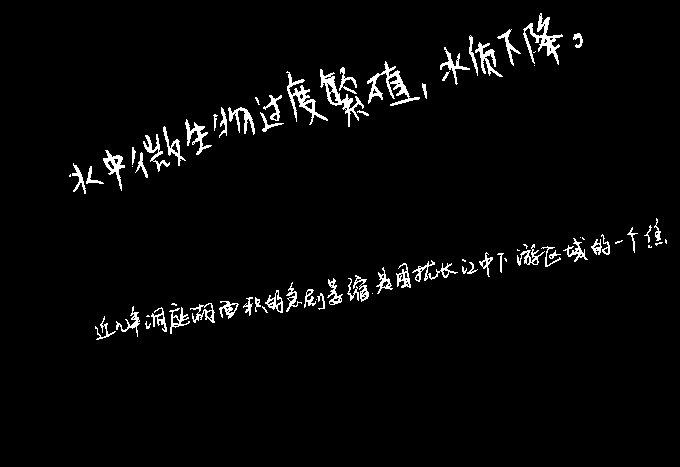 水中微生物过度繁殖，水质下降。
近几年洞庭湖面积的急剧萎缩是困扰长江中下游区域的一个焦